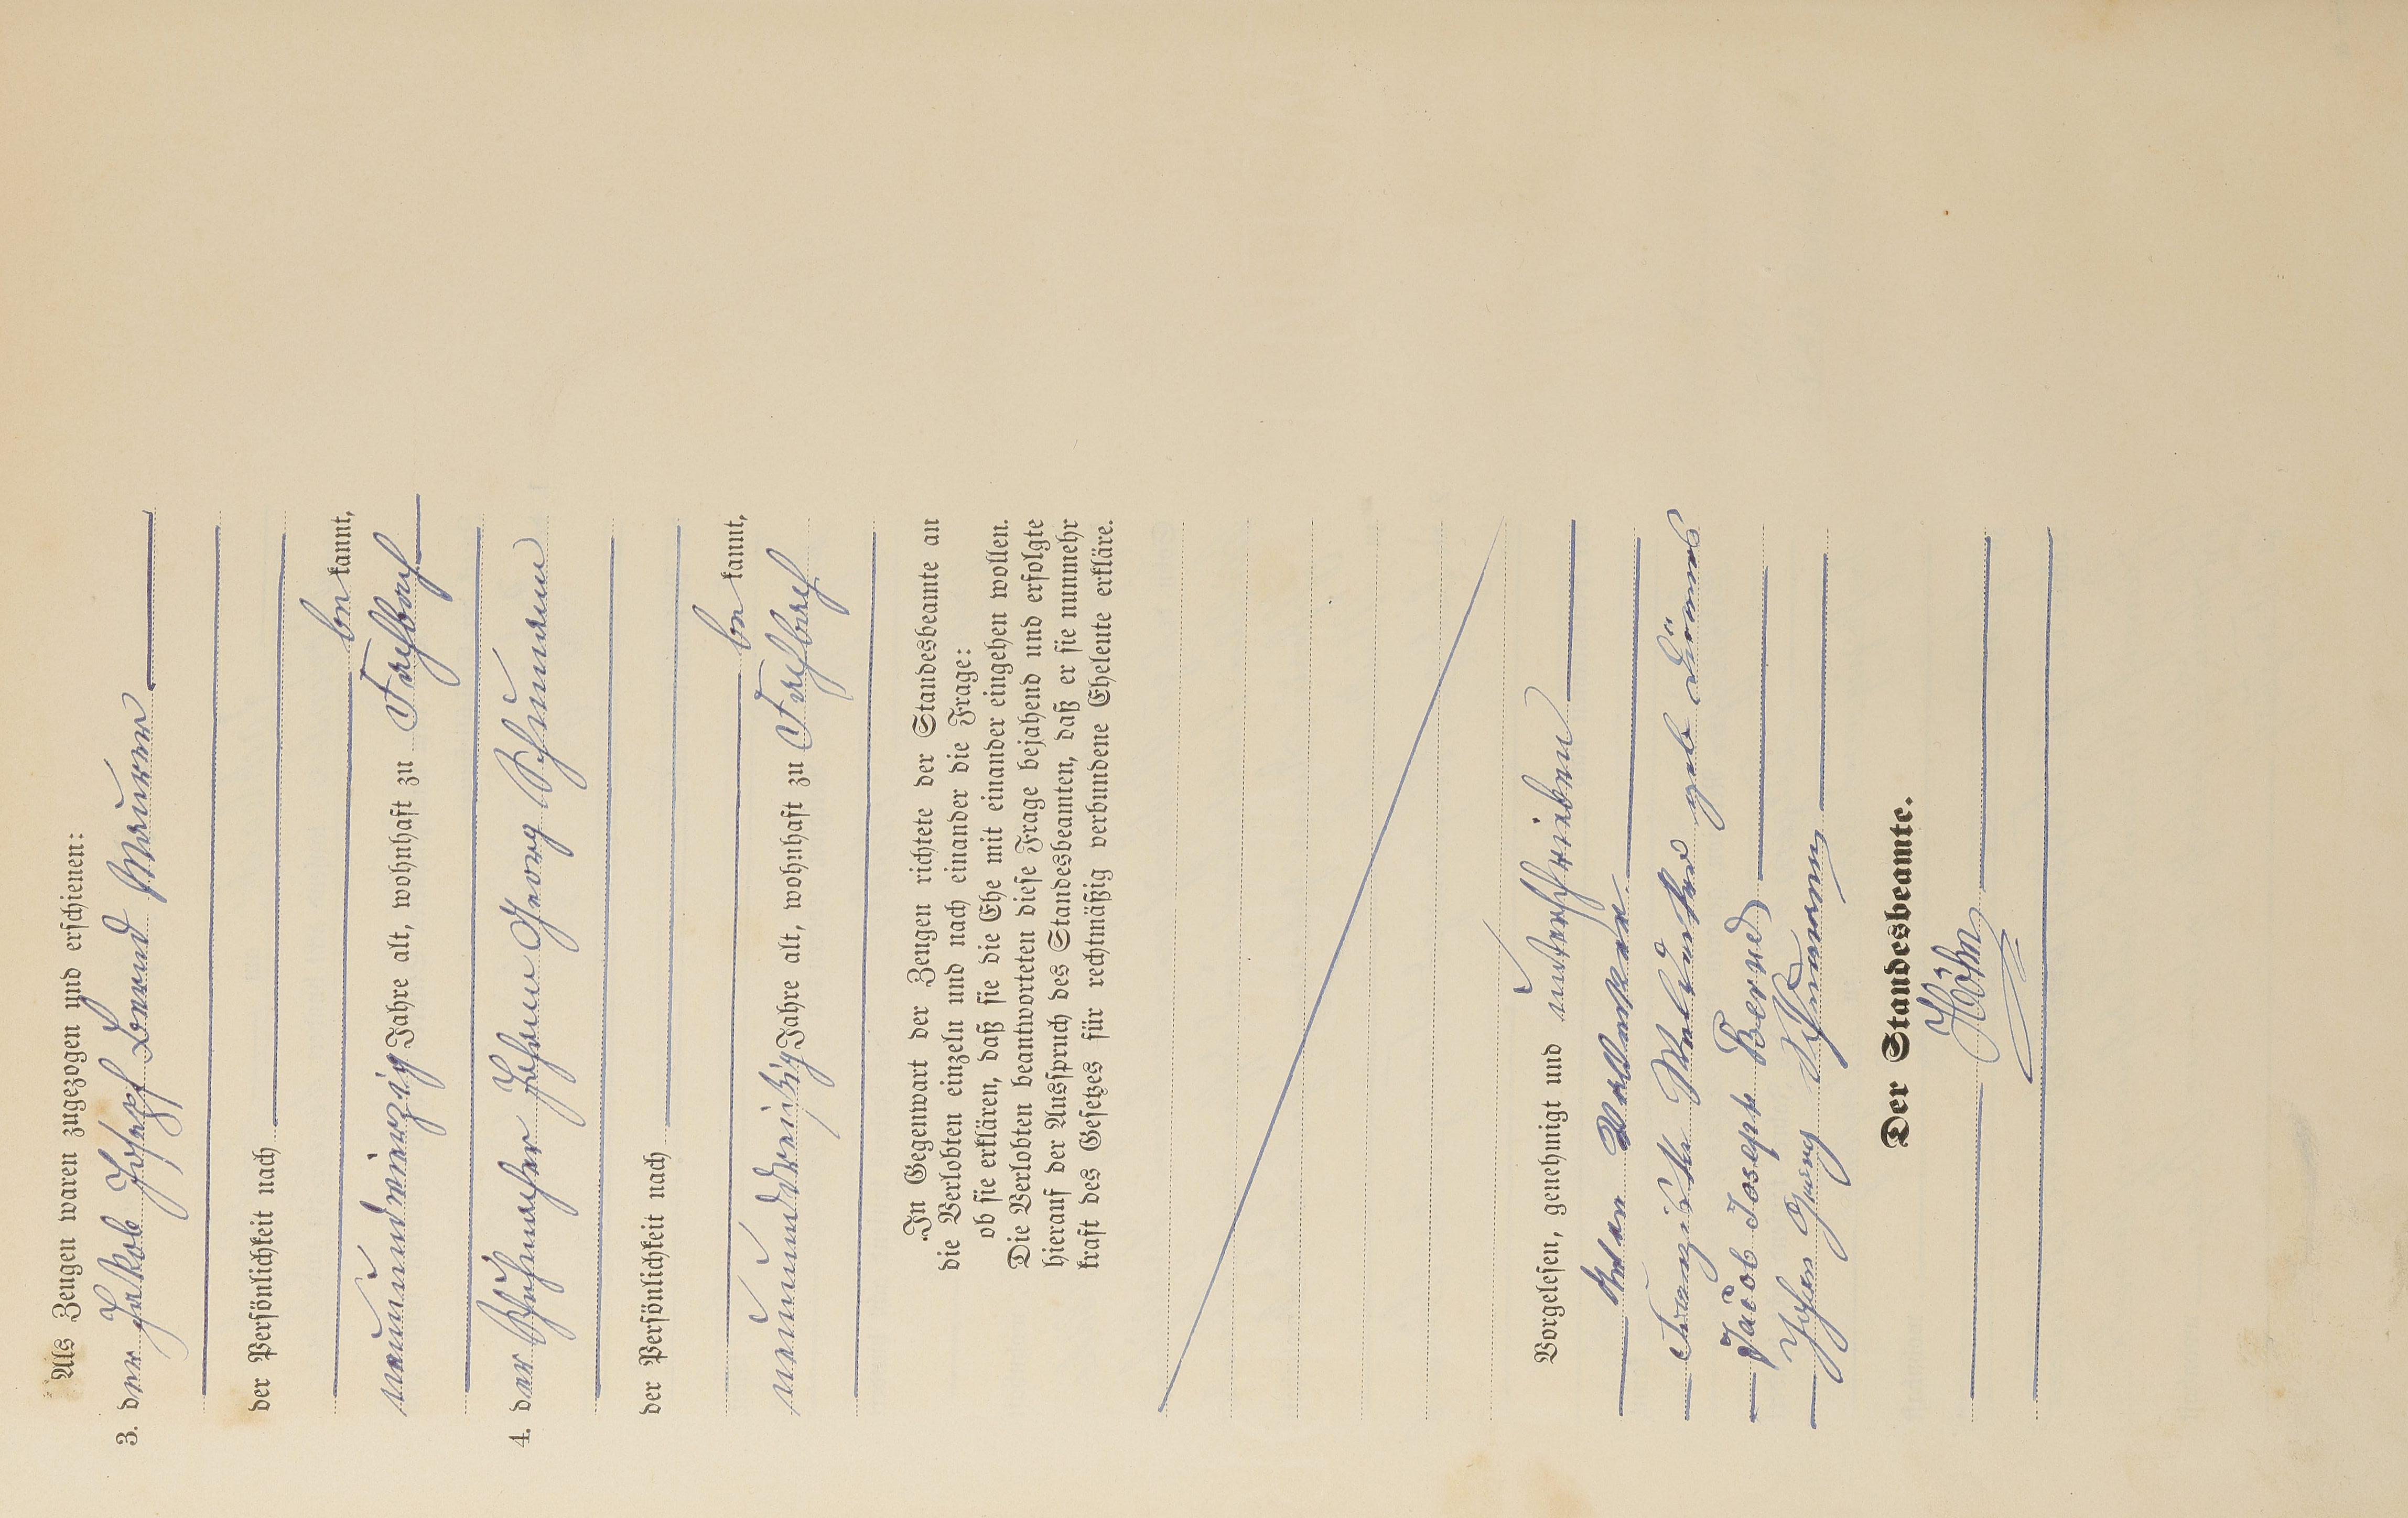 Als Zeugen waren zugezogen und erschienen:
3. der Jakob Joseph Bernd Maurer
der Persönlichkeit nach
be kannt,
neunundvierzig Jahre alt, wohnhaft zu Fischbach
4. der Schuhmacher Johann Georg Schumann
der Persönlichkeit nach
be kannt,
neununddreißig Jahre alt, wohnhaft zu Fischbach
In Gegenwart der Zeugen richtete der Standesbeamte an
die Verlobten einzeln und nach einander die Frage:
ob sie erklären, daß sie die Ehe mit einander eingehen wollen.
Die Verlobten beantworteten diese Frage bejahend und erfolgte
hierauf der Ausspruch des Standesbeamten, daß er sie nunmehr
kraft des Gesetzes für rechtmäßig verbundene Eheleute erkläre.
Vorgelesen, genehmigt und unterschrieben
geb
Jacob Joseph Bernd
Johan Georg Schumann
Der Standesbeamte.